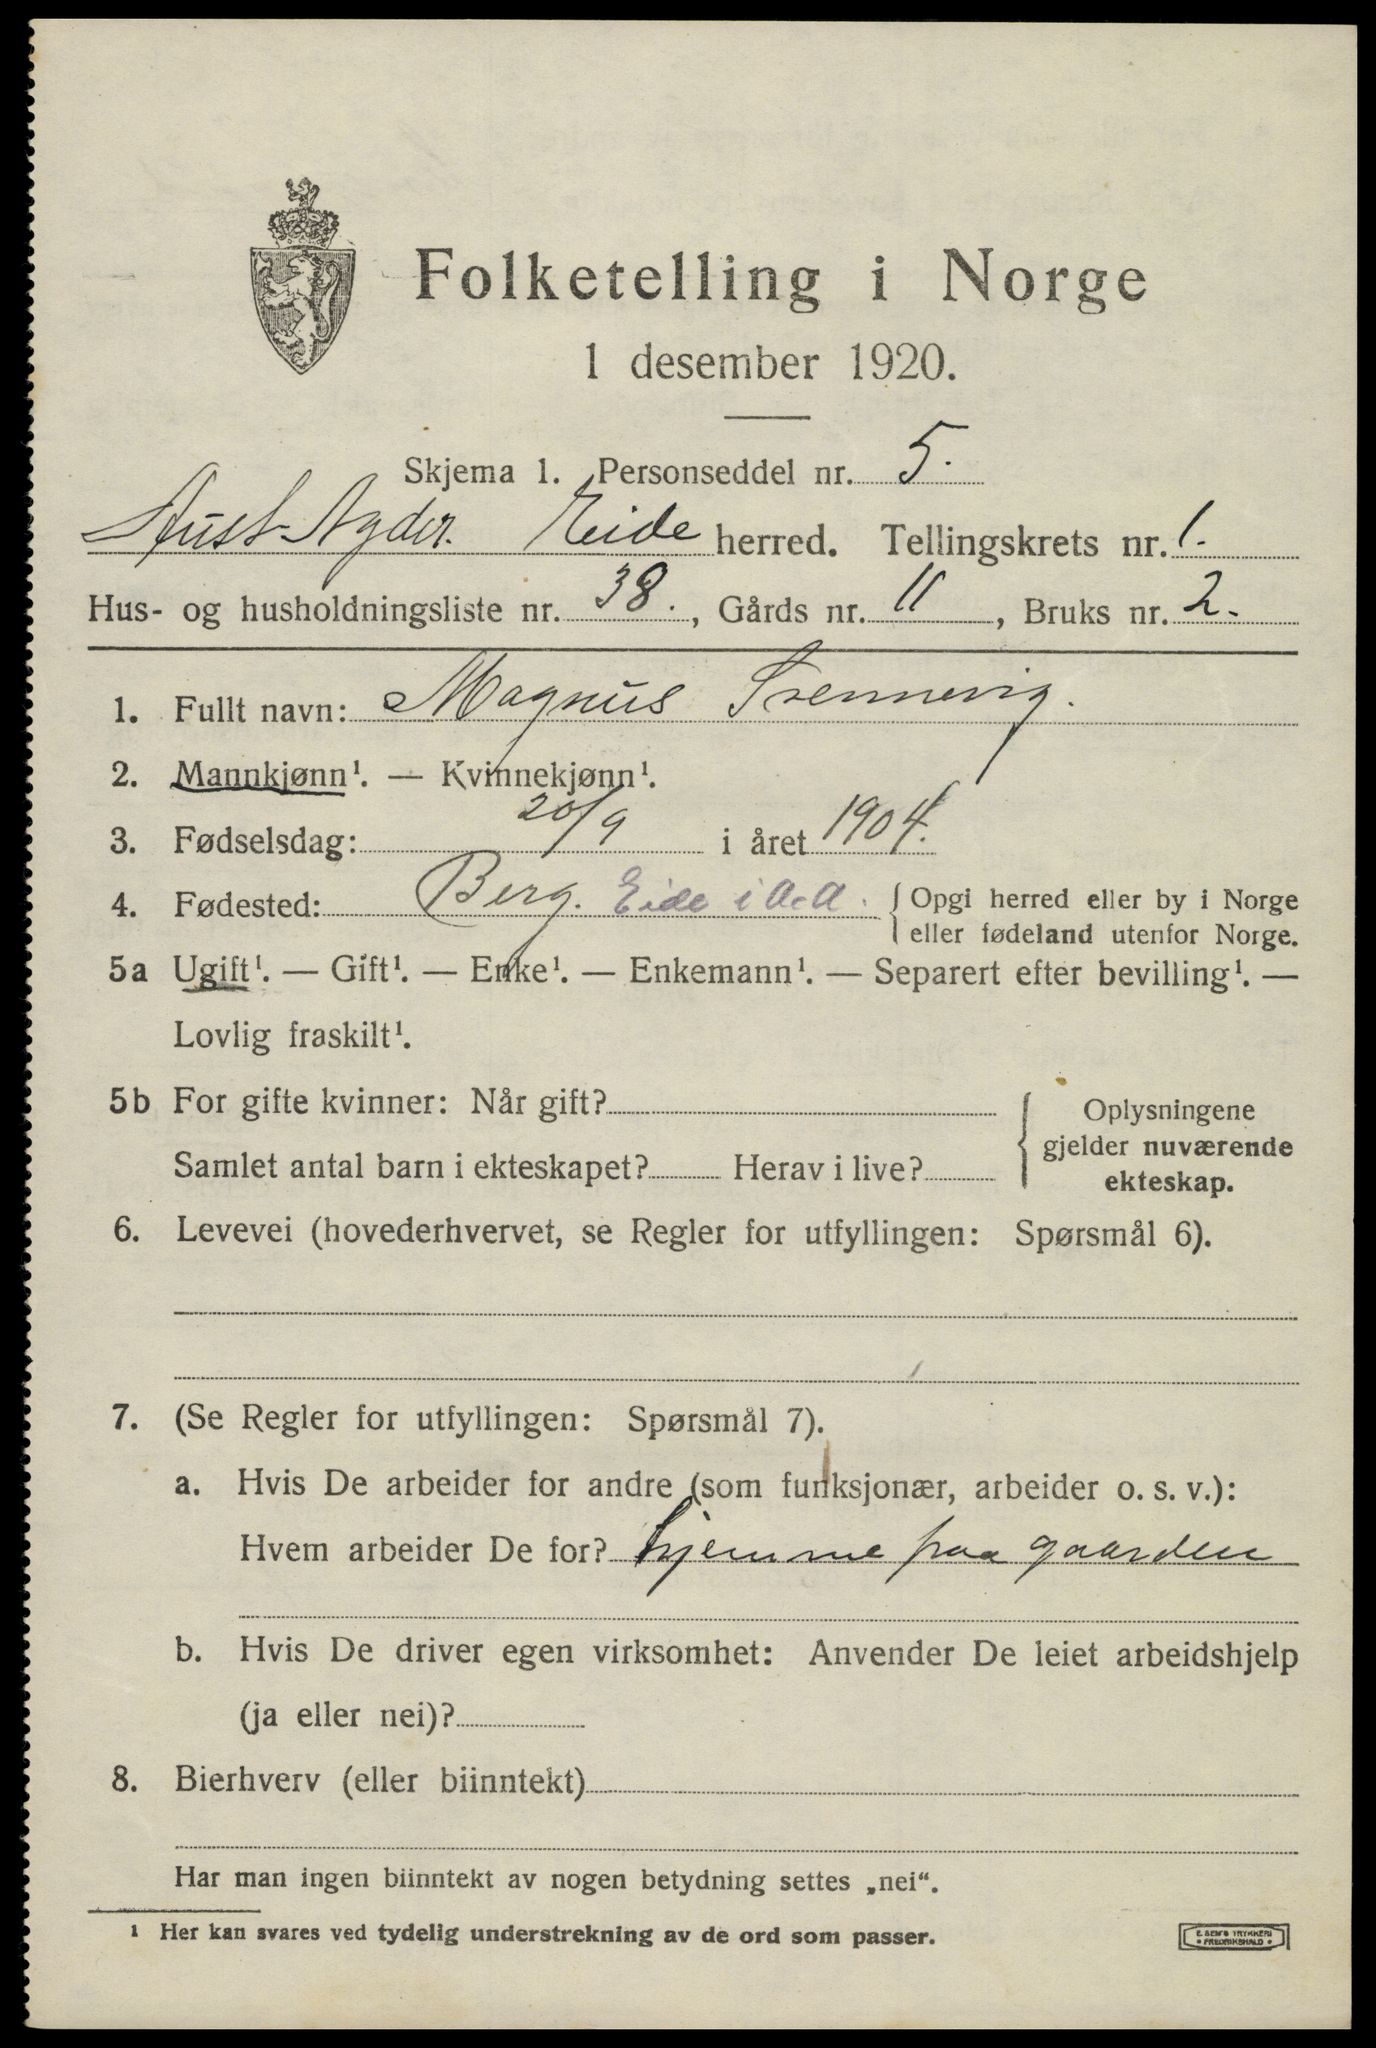 Folketelling i Norge
1 desember 1920.
Skjema 1. Personseddel nr. 5.
Aust-Agder. Eide herred. Tellingskrets nr. 1.
Hus- og husholdningsliste nr. 38., Gårds nr. 11, Bruks nr. 2.
1. Fullt navn: Magnus Svennevig.
2. Mannkjønn¹. — Kvinnekjønn¹.
3. Fødselsdag: 20/9 i året 1904.
4. Fødested: Berg. Eide i A.A. { Opgi herred eller by i Norge
eller fødeland utenfor Norge.
5a Ugift¹. — Gift¹. — Enke¹. — Enkemann¹. — Separert efter bevilling¹. —
Lovlig fraskilt¹.
5b For gifte kvinner: Når gift? { Oplysningene
gjelder nuværende
Samlet antal barn i ekteskapet? Herav i live?
ekteskap.
6. Levevei (hovederhvervet, se Regler for utfyllingen: Spørsmål 6).
7. (Se Regler for utfyllingen: Spørsmål 7).
a. Hvis De arbeider for andre (som funksjonær, arbeider o. s. v.):
Hvem arbeider De for? hjemme paa gaarden
b. Hvis De driver egen virksomhet: Anvender De leiet arbeidshjelp
(ja eller nei)?
8. Bierhverv (eller biinntekt)
Har man ingen biinntekt av nogen betydning settes „nei“.
¹ Her kan svares ved tydelig understrekning av de ord som passer.
E. SEM'S TRYKKERI
• FREDRIKSHALD •